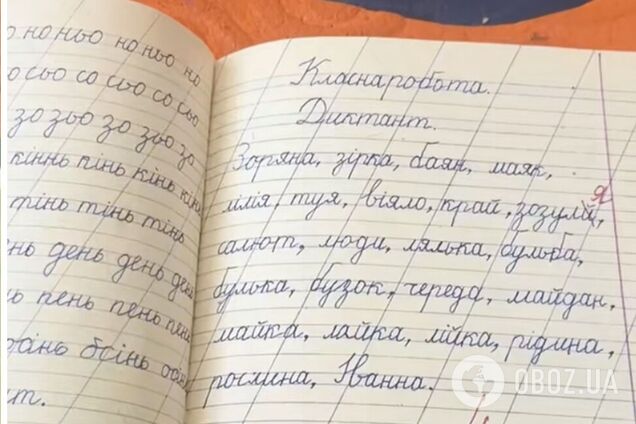 но ньо но ньо но
сьо со сьо со сьо
зо зьо зо зьо зо
кіннь пінь кінь кінь
тінь тінь тінь
день день день
пень пень пень
Класна робота.
Диктант.
Зоряна, зірка, баян, маяк,
я
лілія, туя, віяло, край, зозулй,
салют, люди, лялька, бульба,
булька, бузок, череда, майдан,
майка, лайка, лійка, рідина,
рослина, Іванна.
OBOZ.UA